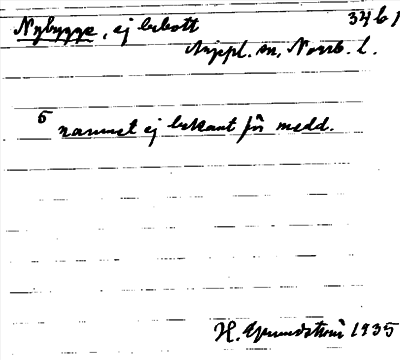 Nybygge, ej bebott 34 b 1
Arjepl. sn, Norrb. l.
5 namnet ej bekant för medd.
H. Grundström 1935